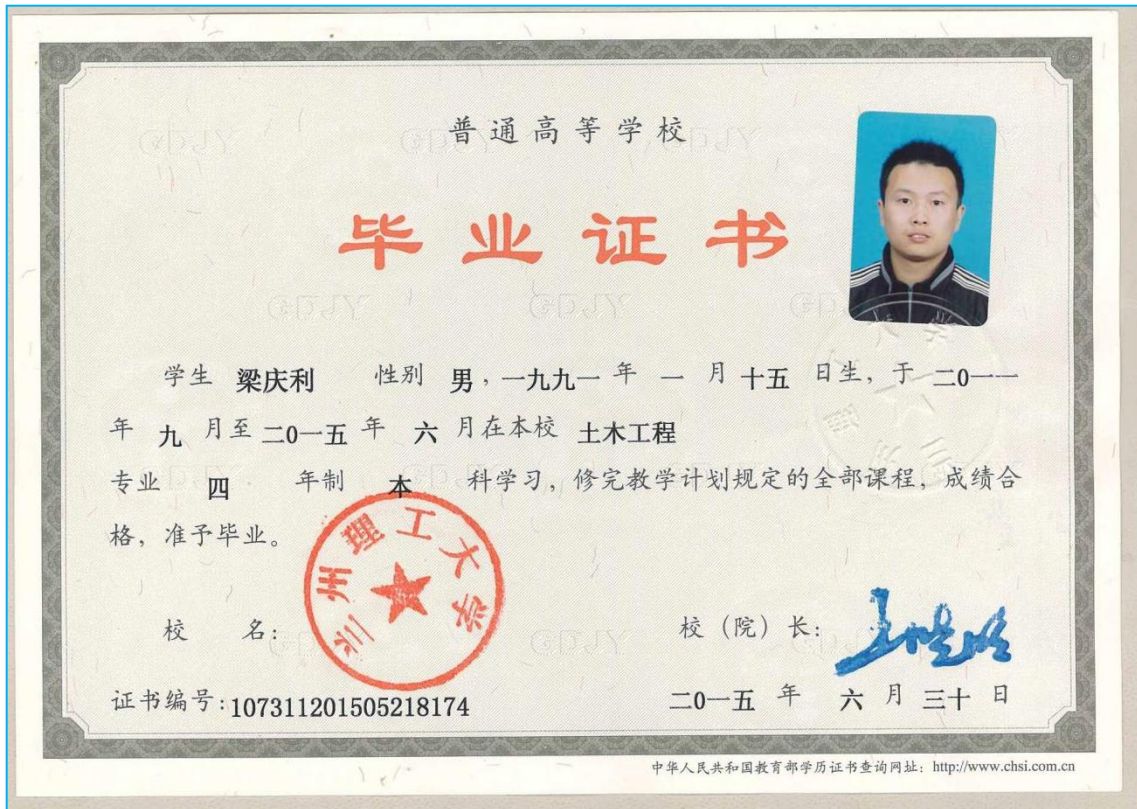 普通高等学校
毕业证书
学生 梁庆利 性别 男，一九九一 年 一 月 十五 日生，于 二0一一
年 九 月至 二0一五 年 六 月在本校 土木工程
专业 四 年制 本 科学习，修完教学计划规定的全部课程，成绩合
格，准予毕业。
兰州理工大学
校 名：
校（院）长：
证书编号：107311201505218174
二0一五 年 六 月 三十 日
中华人民共和国教育部学历证书查询网址：http://www.chsi.com.cn
GDJY
GDJY
GDJY
GDJY
GDJY